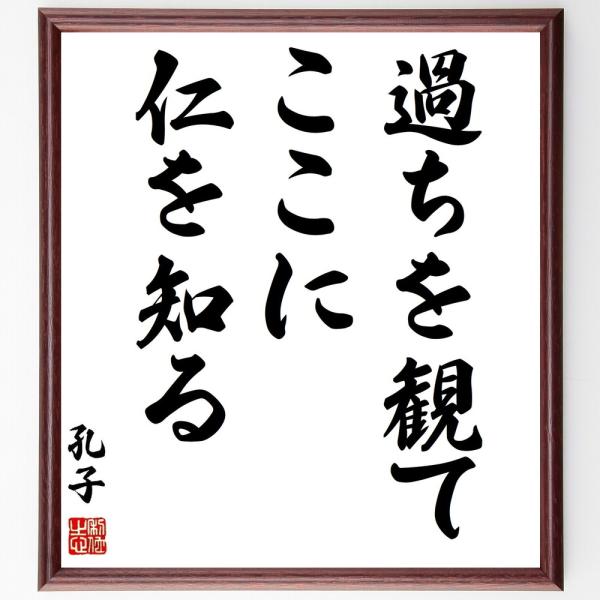 過ちを観て
ここに
仁を知る
孔子